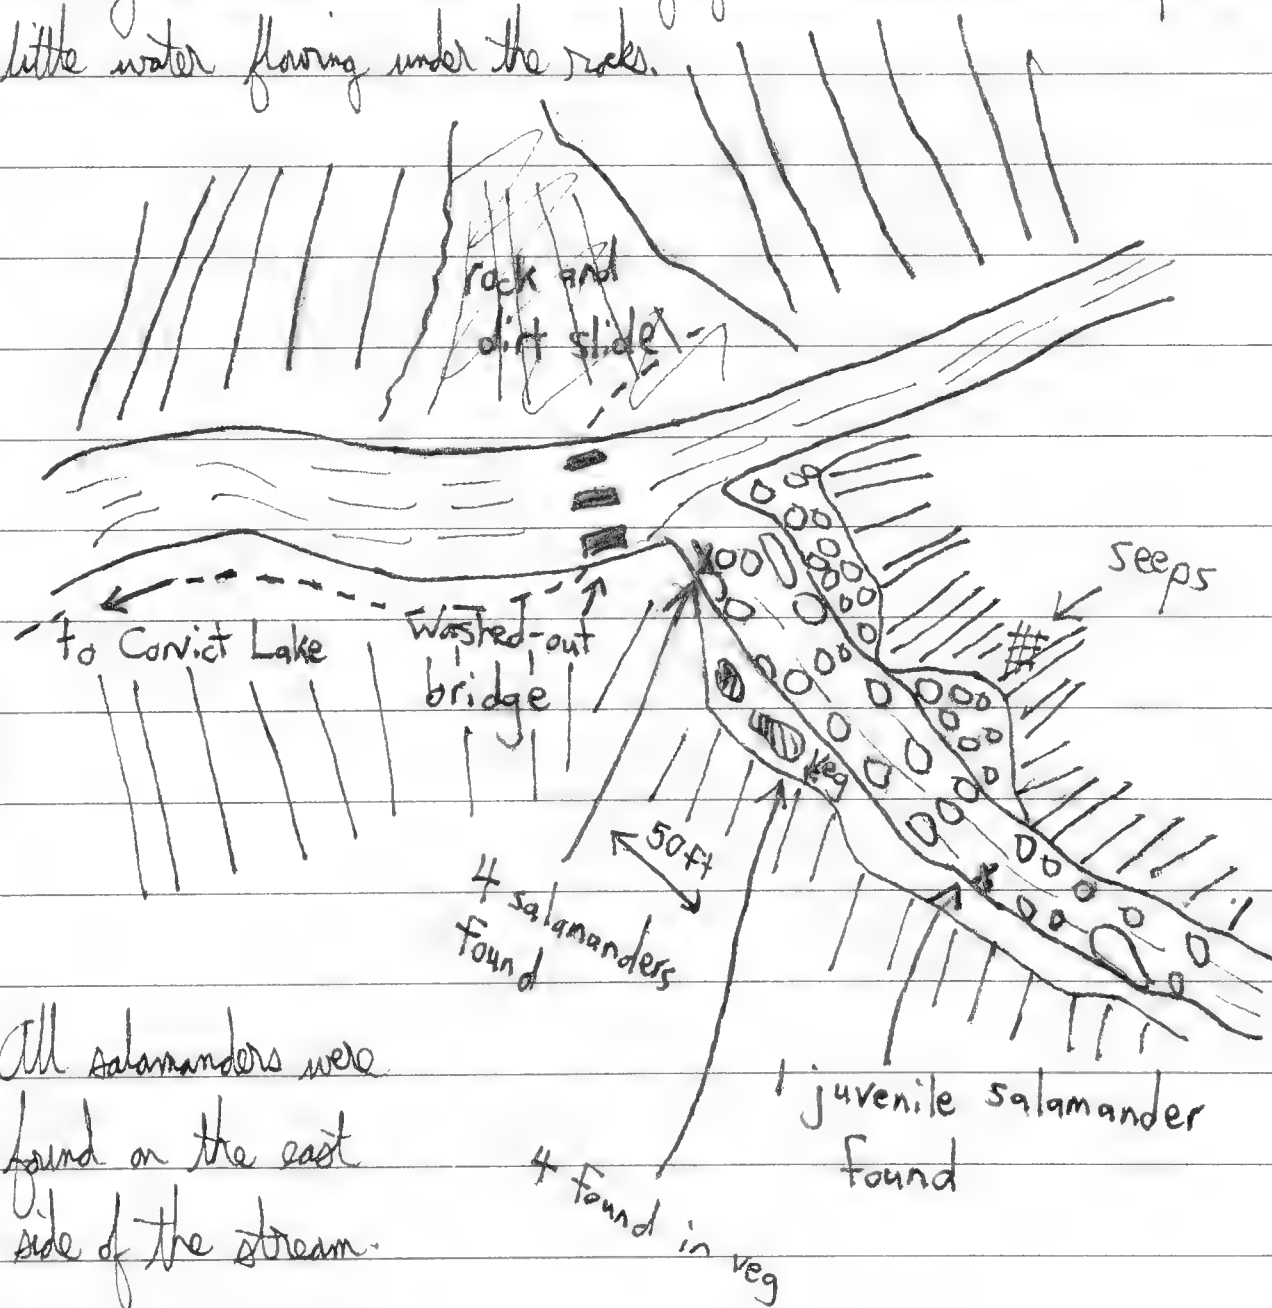 little water flowing under the rocks.
rock and
dirt slide
seeps
to Convict Lake
Washed-out
bridge
veg
50ft
4 salamanders
found
1 juvenile salamander
found
4 found in veg
All salamanders were
found on the east
side of the stream.